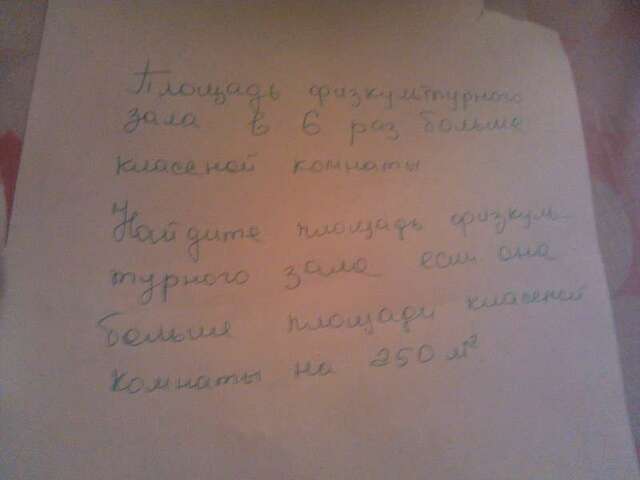 Площадь физкультурного
зала в 6 раз больше
класеной комнаты
Найдите площадь физкуль
турного зала если она
больше площади класеной
комнаты на 250 м²